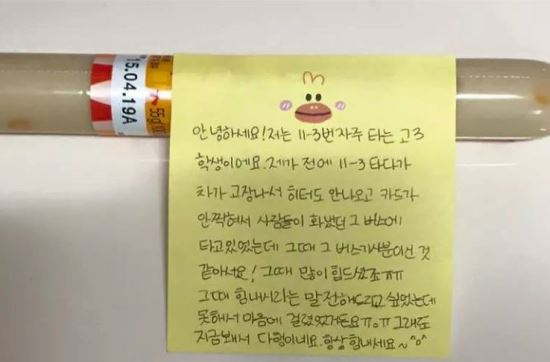 15.04.19A
55g
안녕하세요! 저는 11-3번 자주 타는 고3
학생이에요. 제가 전에 11-3 타다가
차가 고장나서 히터도 안나오고 카드가
안찍혀서 사람들이 화냈던 그 버스에
타고있었는데 그때 그 버스기사분이신 것
같아서요! 그때 많이 힘드셨죠ㅠㅠ
그때 힘내시라는 말 전해드리고 싶었는데
못해서 마음에 걸렸었거든요ㅠ.ㅠ 그래도
지금봬서 다행이네요. 항상 힘내세요~^o^